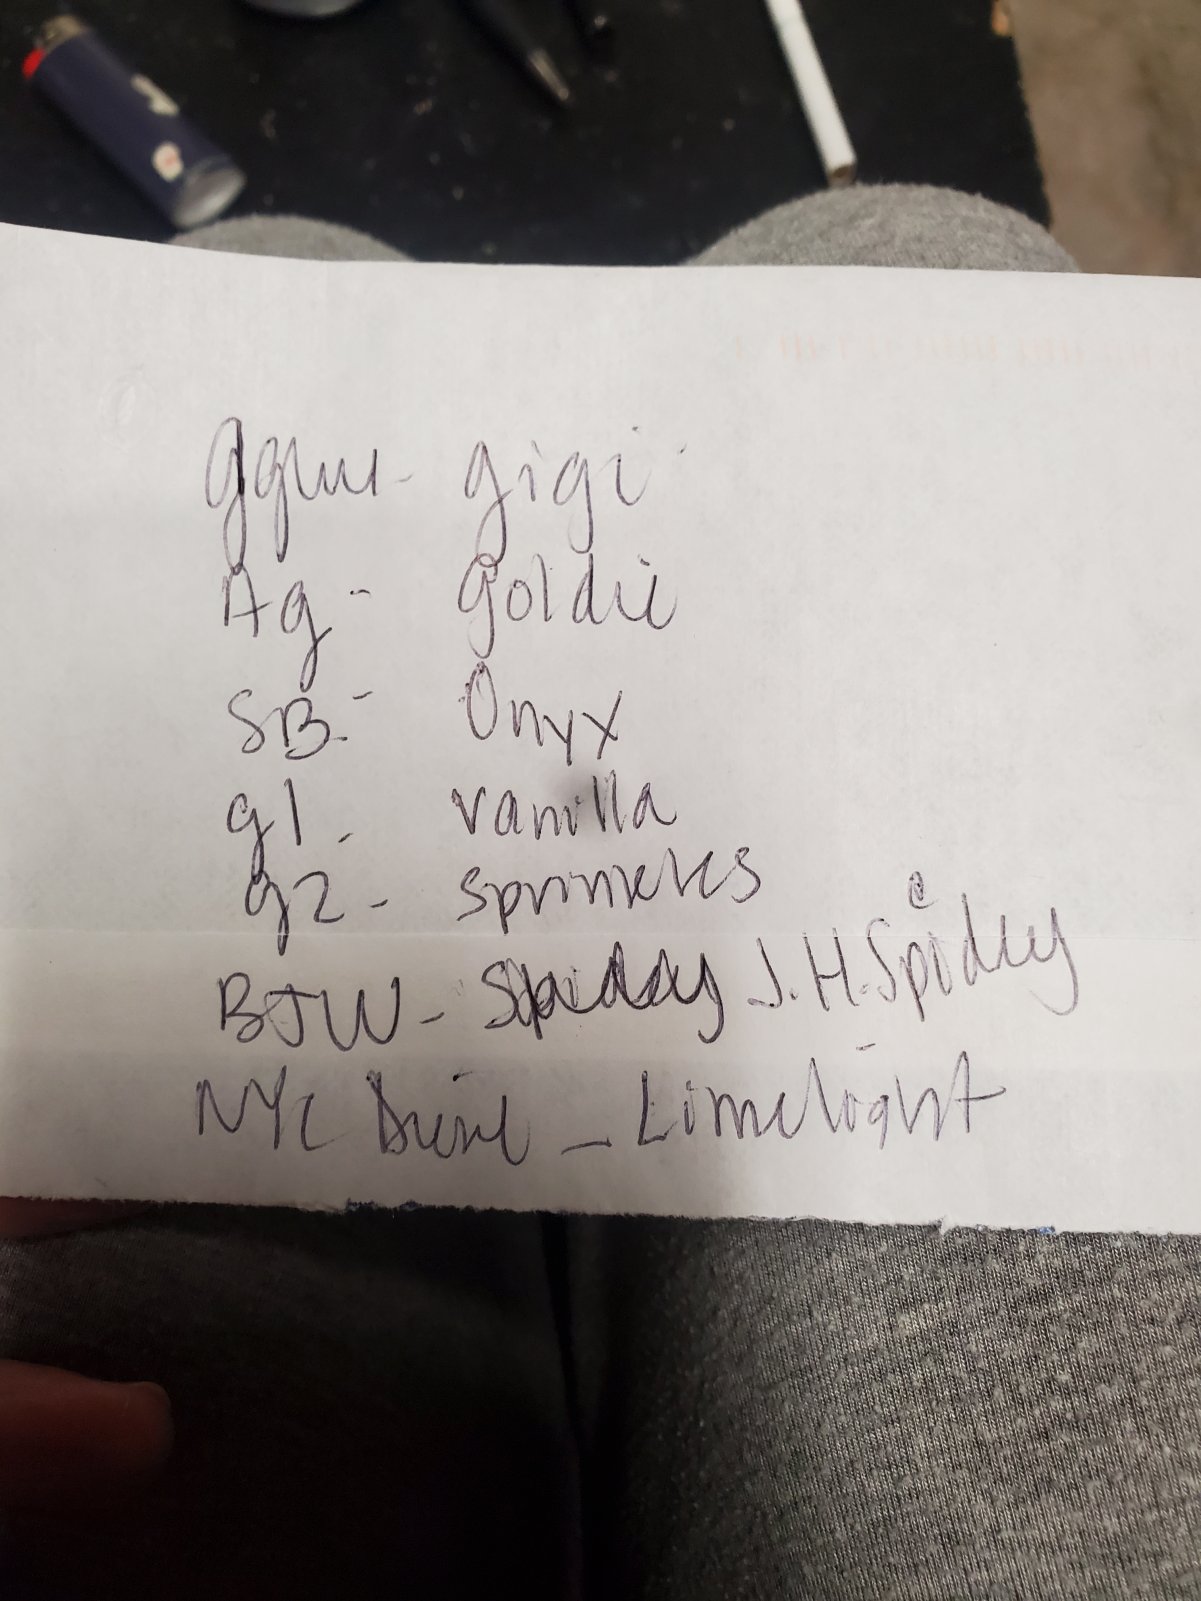 gglui - gigi
Ag - Goldie
SB - Onyx
g1 - vanilla
g2 - Sprinkles
BJW - J.H. Spidey
NYC Diesel - Limelight